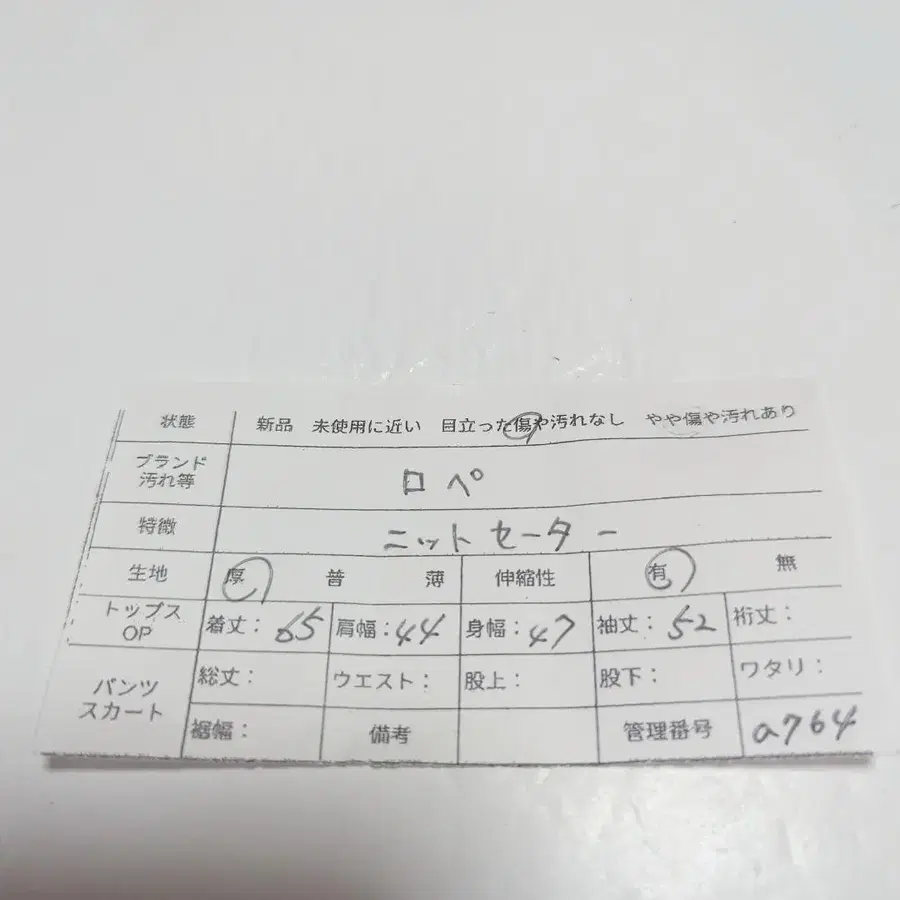 状態 新品 未使用に近い 目立った傷や汚れなし やや傷や汚れあり
ブランド
汚れ等 ロペ
特徴 ニットセーター
生地 厚 普 薄 伸縮性 有 無
トップス
OP 着丈：65 肩幅：44 身幅：47 袖丈：52 裄丈：
パンツ
スカート 総丈： ウエスト： 股上： 股下： ワタリ：
裾幅： 備考 管理番号 a764